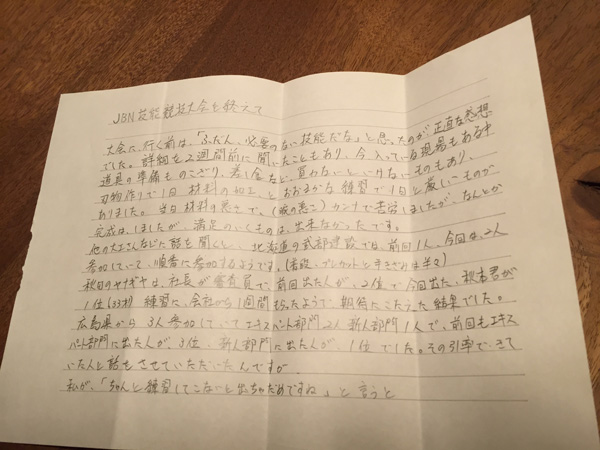 JBN技能競技大会を終えて
大会に行く前は、「ふだん、必要のない技能だな」と思ったのが正直な感想
でした。詳細を2週間前に聞いたこともあり、今入っている現場もある中
道具の準備ものこぎり、差し金など、買わないといけないものもあり、
刃物作りで1日 材料の加工、とおおまかな練習で1日と厳しいものが
ありました。当日材料の悪さで、(眼の悪さ)カンナで苦労しましたが、なんとか
完成はしましたが、満足のいくものは、出来なかったです。
他の大工さんなどに話を聞くと、北海道の武部建設では、前回1人、今回は、2人
参加していて、順番に参加するようです。(普段、プレカットと手きざみは半々)
秋田のヤナギヤは、社長が審査員で、前回出た人が、2位で今回出た、秋本君が
1位(33才) 練習に、会社から1週間もらったようで、期待にこたえた結果でした。
広島県から3人参加していてエキスパート部門2人 新人部門1人で、前回もエキス
パート部門に出た人が、3位、新人部門に出た人が、1位でした。その引率で、きて
いた人と話もさせていただいたんですが
私が、「ちゃんと練習してこないと出ちゃだめですね」と言うと